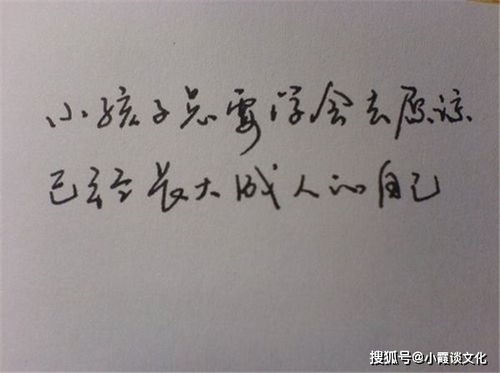 小孩子总要学会去原谅
已经长大成人的自己
搜狐号@小霞谈文化